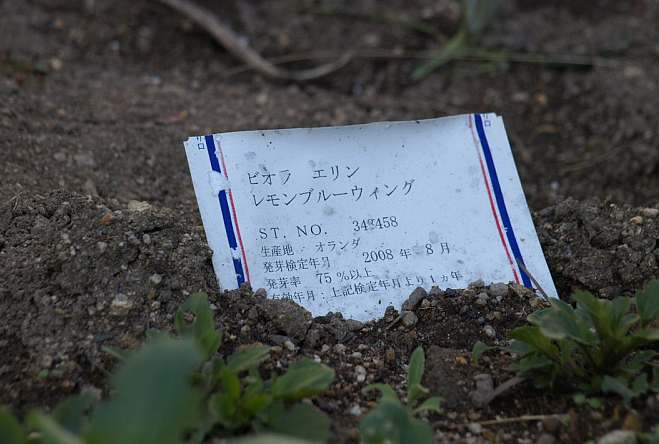 ビオラ エリン
レモンブルーウィング
ST. NO. 348458
生産地: オランダ
発芽検定年月 2008 年 8 月
発芽率 75 %以上
有効年月:上記検定年月より1ヵ年